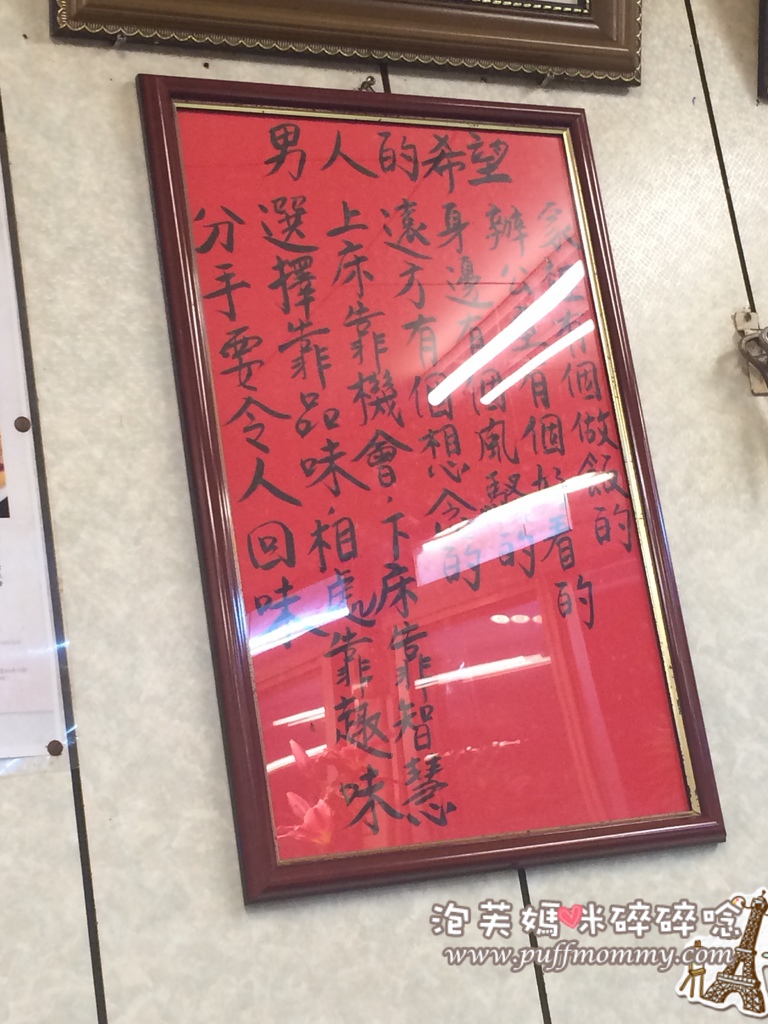 男人的希望
家裡有個做飯的
辦公室有個好看的
身邊有個風騷的
遠方有個想念的
上床靠機會,下床靠智慧
選擇靠品味,相處靠趣味
分手要令人回味
泡芙媽咪碎碎唸
www.puffmommy.com